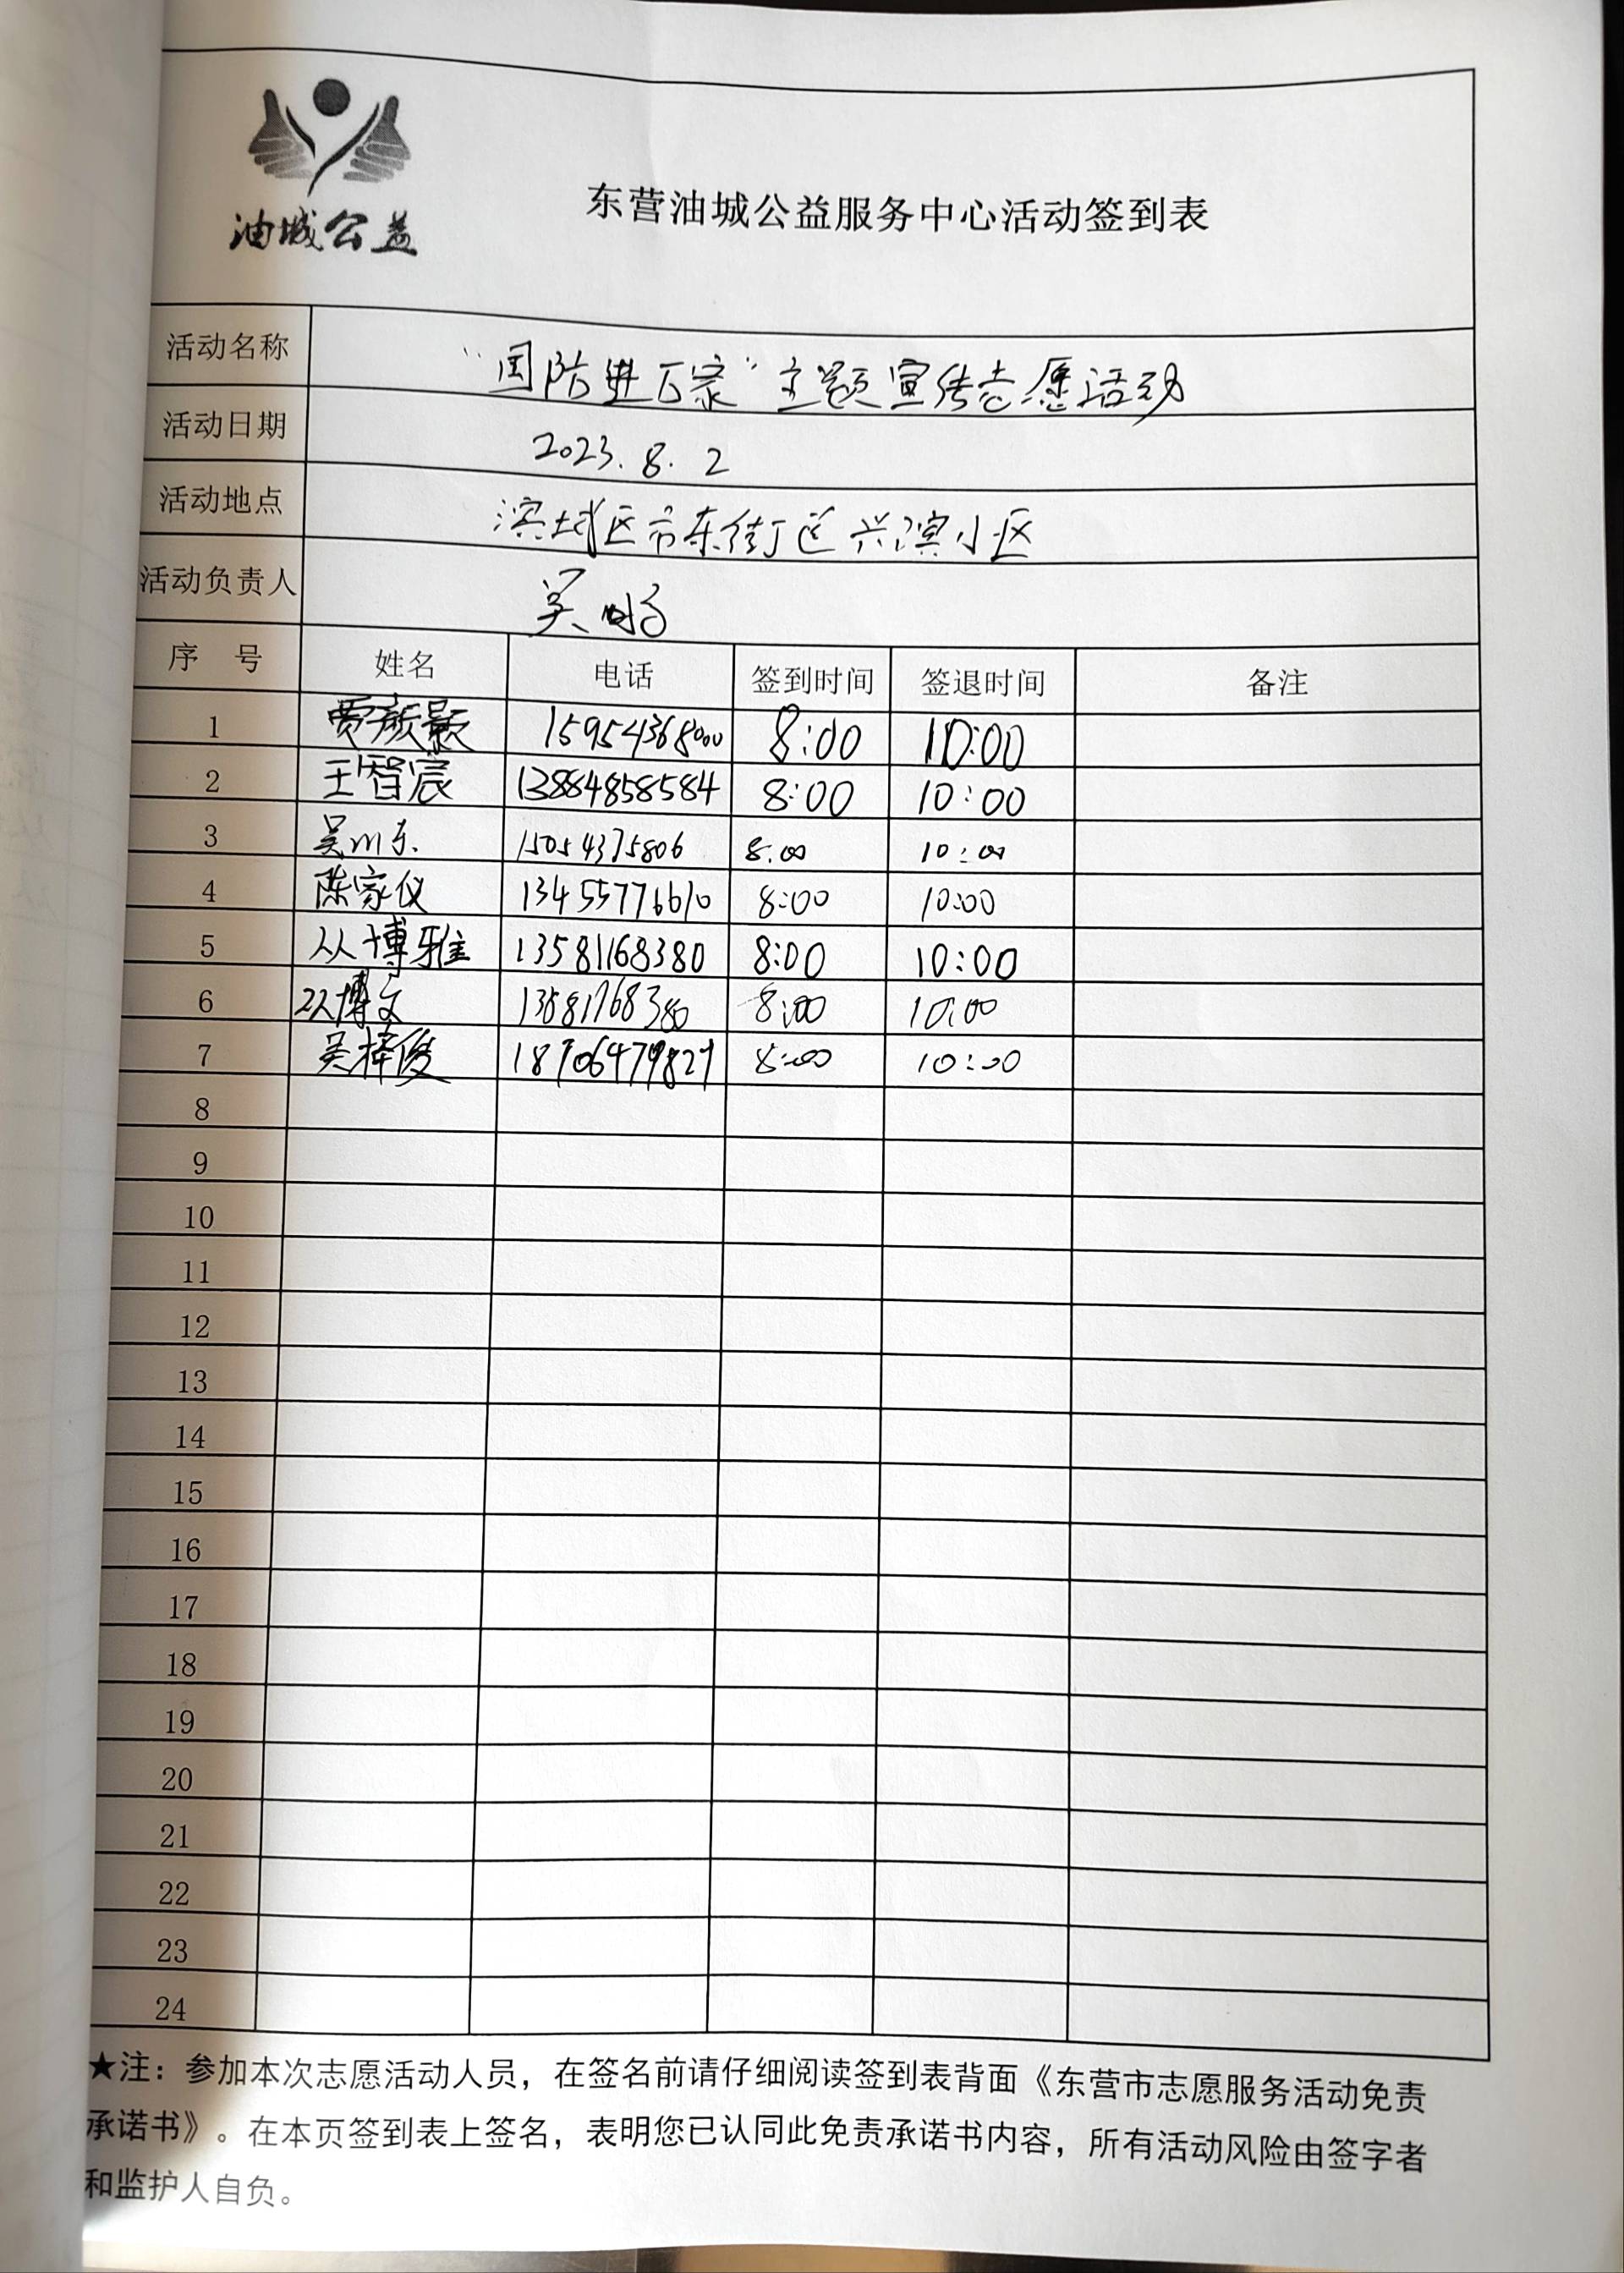 油城公益
东营油城公益服务中心活动签到表
活动名称 “国防进万家”主题宣传志愿活动
活动日期 2023.8.2
活动地点 滨城区市东街道兴滨小区
活动负责人 吴鹏
序 号 姓名 电话 签到时间 签退时间 备注
1 贾颜颢 15954368000 8:00 10:00
2 王智宸 13884858584 8:00 10:00
3 吴川东 15054375806 8:00 10:00
4 陈家仪 13455776610 8:00 10:00
5 从博雅 13581168380 8:00 10:00
6 从博文 13581168380 8:00 10:00
7 吴择俊 18706479827 8:00 10:00
8
9
10
11
12
13
14
15
16
17
18
19
20
21
22
23
24
★注：参加本次志愿活动人员，在签名前请仔细阅读签到表背面《东营市志愿服务活动免责
承诺书》。在本页签到表上签名，表明您已认同此免责承诺书内容，所有活动风险由签字者
和监护人自负。